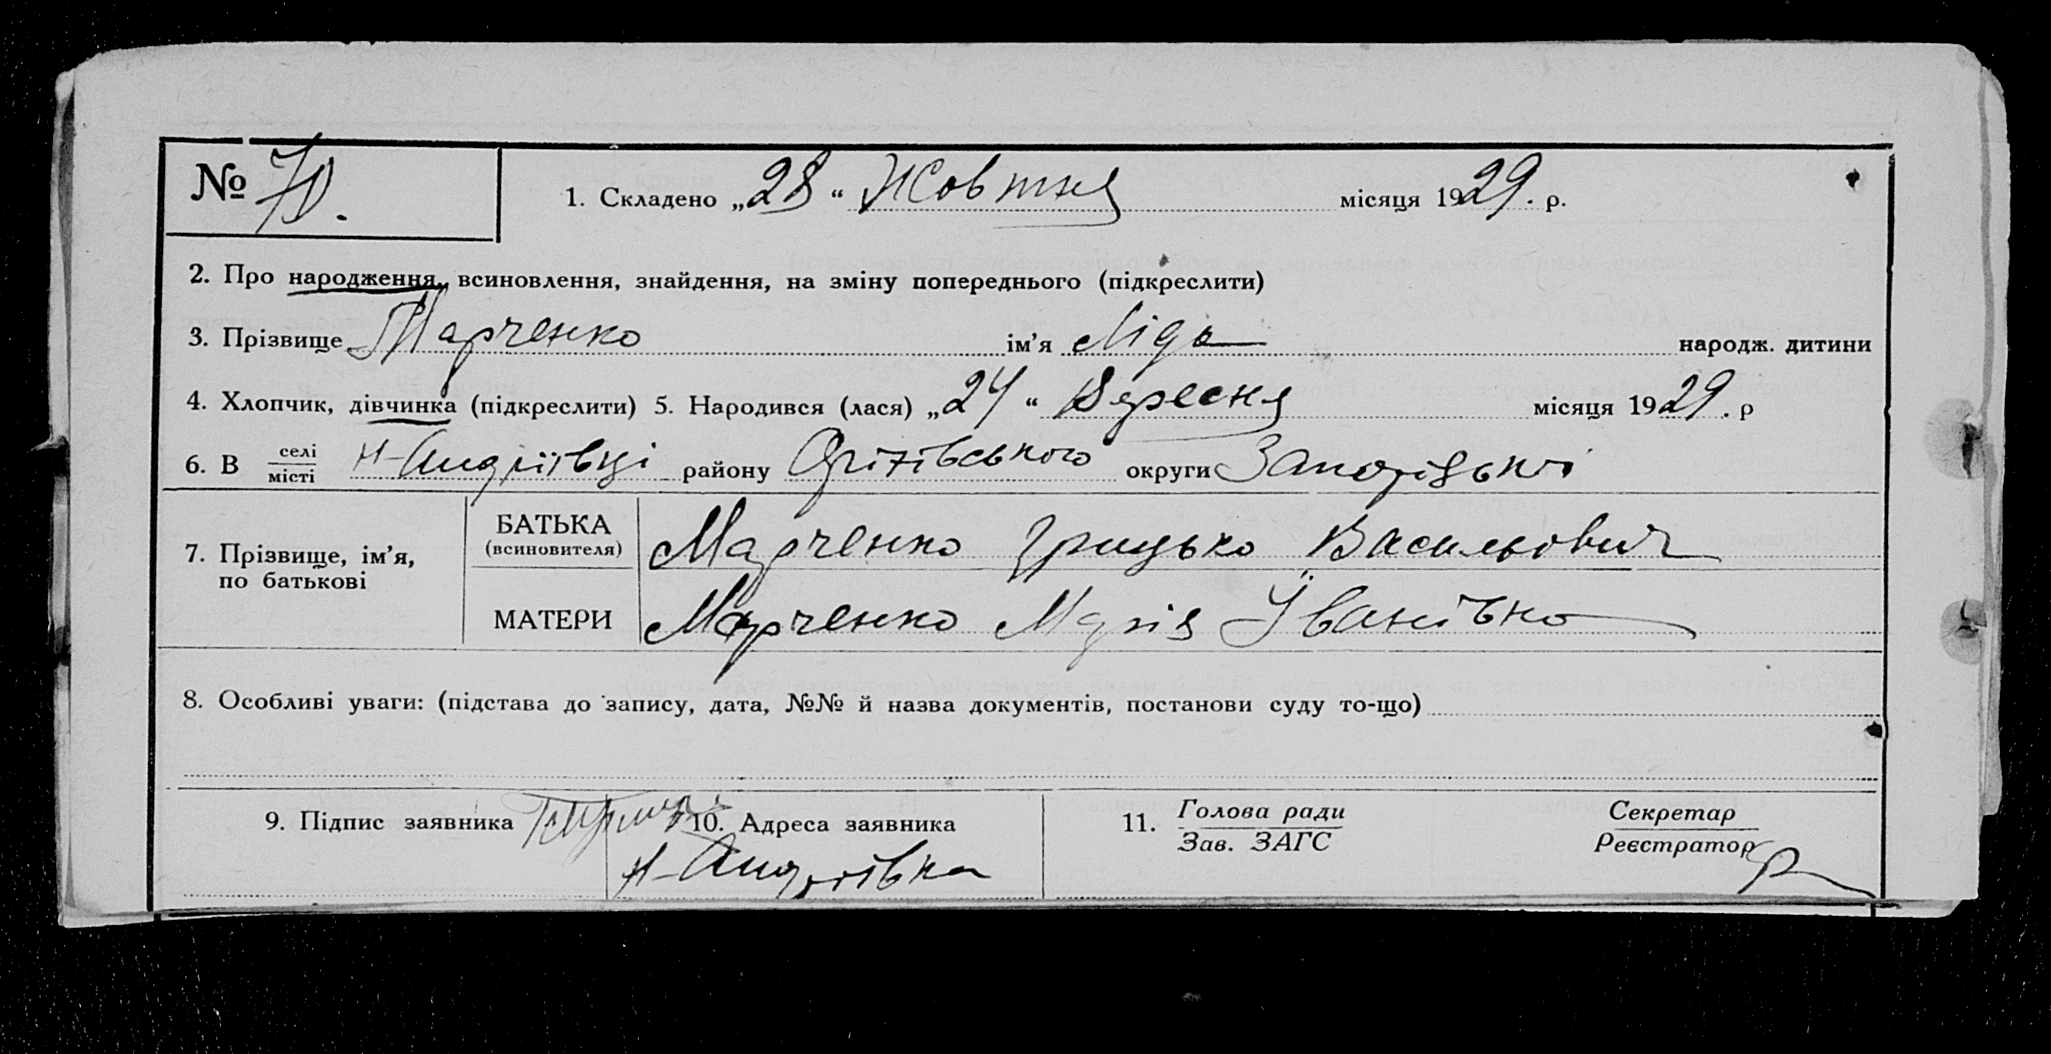 № 70.
1. Складено „28“ Жовтня місяця 1929. р.
2. Про народження, всиновлення, знайдення, на зміну попереднього (підкреслити)
3. Прізвище Марченко ім’я Ліда народж. дитини
4. Хлопчик, дівчинка (підкреслити) 5. Народився (лася) „24“ Вересня місяця 1929. р
6. В селі місті Н-Андріівці району Оріхівського округи Запоріцькоі
7. Прізвище, ім’я, по батькові
БАТЬКА (всиновителя) Марченко Грицько Васильович
МАТЕРИ Марченко Марія Іванівна
8. Особливі уваги: (підстава до запису, дата, №№ й назва документів, постанови суду то-що)
9. Підпис заявника
10. Адреса заявника
Н-Андріівка
11. Голова ради
Зав. ЗАГС
Секретар
Реєстратор